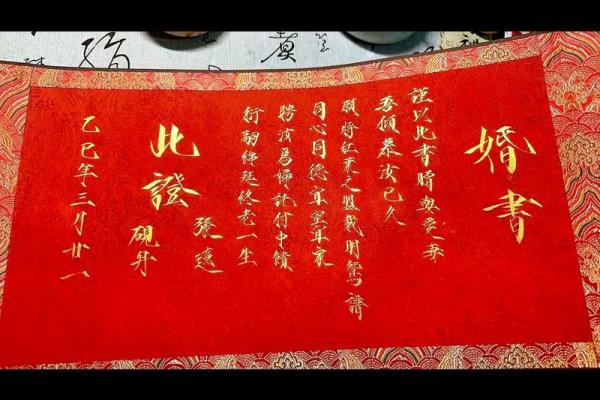 婚書
謹以此書贈與愛妻
吾傾慕汝已久
願將紅葉之盟載明鴛譜
同心同德宜室宜家
聘汝為婦託付中饋
衍嗣綿延終老一生
張遠
此證
硯舟
乙巳年三月廿一